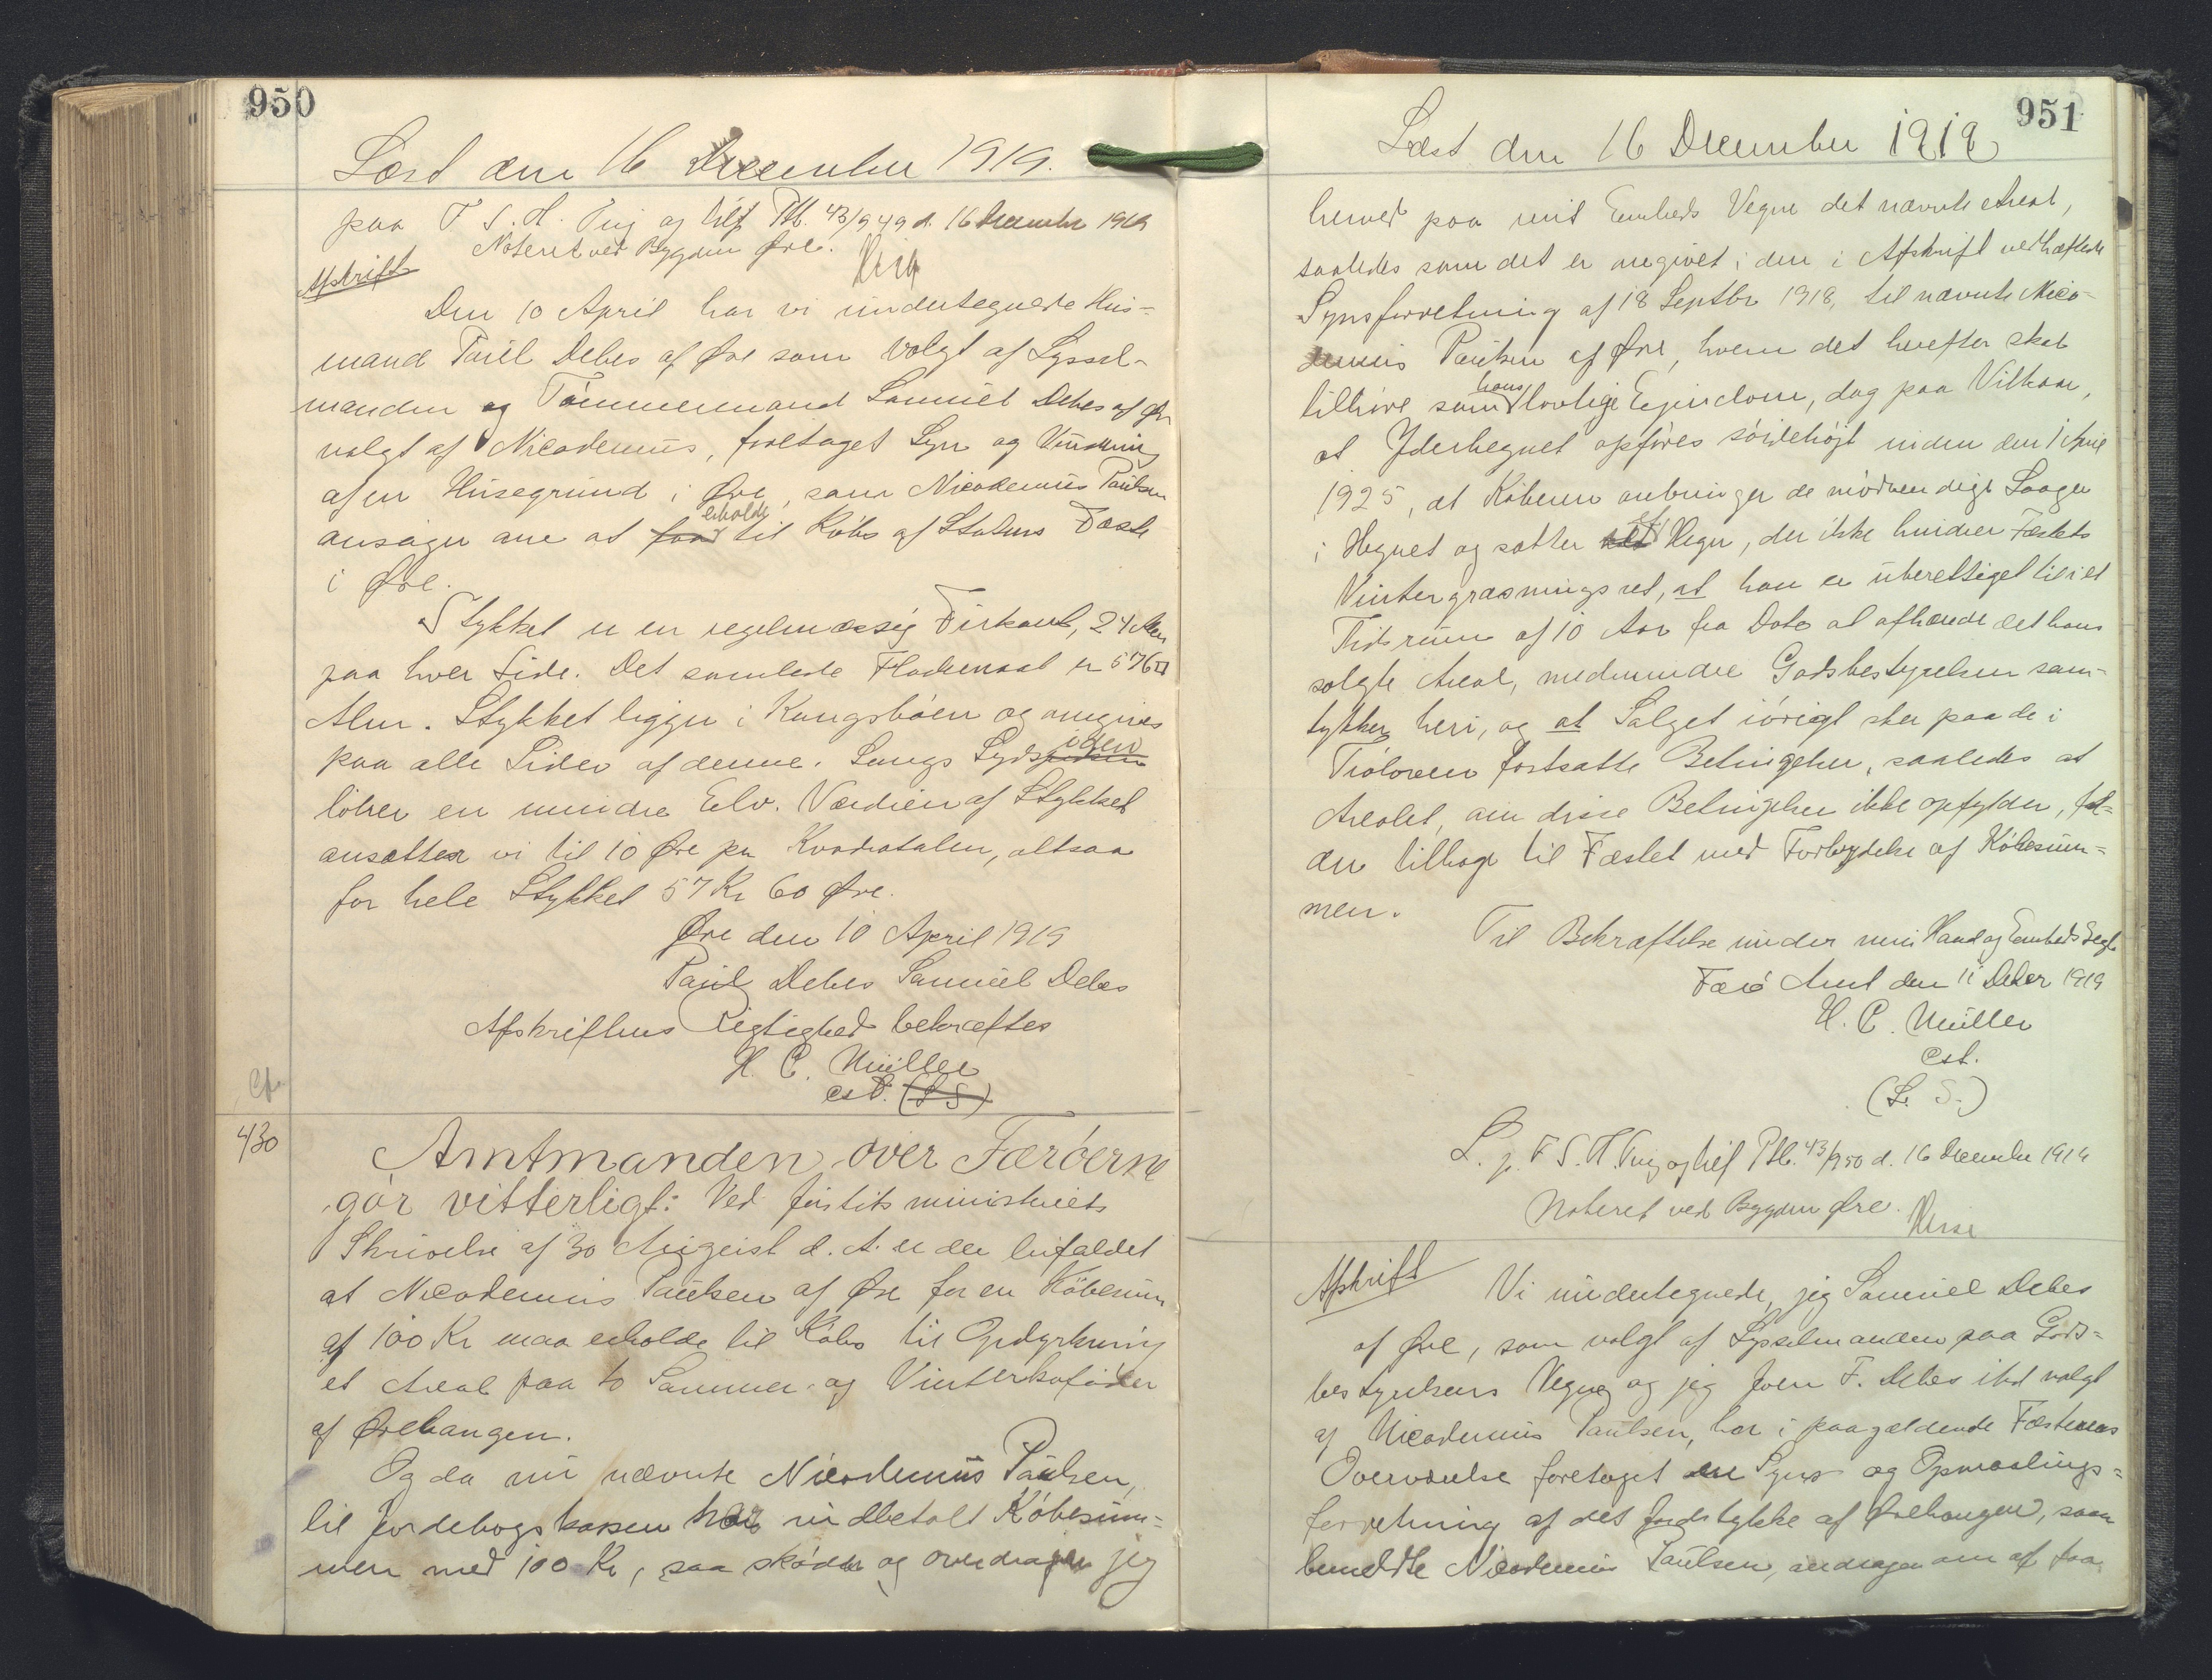 950
Læst den 16 December 1919.
paa F. S. H. Ting og tilf Ptb. 43/949 d. 16 December 1919
Noteret ved Bygden Øre.
Afskrift
Den 10 April har vi undertegnede Hus-
mand Paul Debes af Øre som valgt af Syssel-
manden og Tömmermand Samuel Debes af Øre
valgt af Nicodemus, foretaget Syn og Vurdering
af en Husegrund i Øre, som Nicodemus Paulsen
ansöger om at faa erholde til Köbs af Statens Fæste
i Øre.
Stykket er en regelmæssig Firkant, 24 Alen
paa hver Side. Det samlede Flademaal er 576 □
Alen. Stykket ligger i Kongsböen og omgives
paa alle Sider af denne. Langs Sydsiden
löber en mindre Elv. Værdien af Stykket
ansætter vi til 10 Øre pr Kvadratalen, altsaa
for hele Stykket 57 Kr 60 Øre.
Øre den 10 April 1919
Paul Debes Samuel Debes
Afskriftens Rigtighed bekræftes
H. C. Müller
cst. (LS)
430
Amtmanden over Færöerne
gör vitterligt: Ved Justitsministeriets
Skrivelse af 30 August d. A. er der bifaldet
at Nicodemus Paulsen af Øre for en Köbesum
af 100 Kr maa erholde til Köbs til Opdyrkning
et Areal paa to Sommer- og Vinterkofoder
af Ørehaugen.
Og da nu nævnte Nicodemus Paulsen,
til Jordebogskassen har indbetalt Köbesum-
men med 100 Kr, saa sködter og overdrager jeg
951
Læst den 16 December 1919
herved paa mit Embeds Vegne det nævnte Areal,
saaledes som det er angivet i den i Afskrift vedhæftede
Synsforretning af 18 Septbr 1918, til nævnte Nico-
demus Paulsen af Øre, hvem det herefter skal
tilhöre som hans lovlige Ejendom, dog paa Vilkaar,
at Yderhegnet opföres söidehöjt inden den 1 April
1925, at Köberen anbringer de nödvendige Laager
i Hegnet og sætter et Hegn, der ikke hindrer Fæstets
Vintergræsningsret, at han er uberettiget til i et
Tidsrum af 10 Aar fra Dato at afhænde det ham
solgte Areal, medmindre Godsbestyrelsen sam-
tykker heri, og at Salget iövrigt sker paa de i
Tröloven fastsatte Betingelser, saaledes at
Arealet, om disse Betingelser ikke opfyldes, fal-
der tilbage til Fæstet med Fortabelse af Köbesum-
men.
Til Bekræftelse under min Haand og Embeds Segl
Færö Amt den 11 Decbr 1919
H. C. Müller
cst.
(L. S.)
L. p. F S. H. Ting og tilf Ptb. 43/950 d. 16 December 1919
Noteret ved Bygden Øre.
Afskrift
Vi undertegnede, jeg Samuel Debes
af Øre, som valgt af Sysselmanden paa Gods-
bestyrelsens Vegne og jeg Joen F. Debes ibd valgt
af Nicodemus Paulsen, har i paagældende Fæsteres
Overværelse foretaget en Syns og Opmaalings-
forretning af det Jordstykke af Ørehaugen, som
bemeldte Nicodemus Paulsen, andrager om at faa